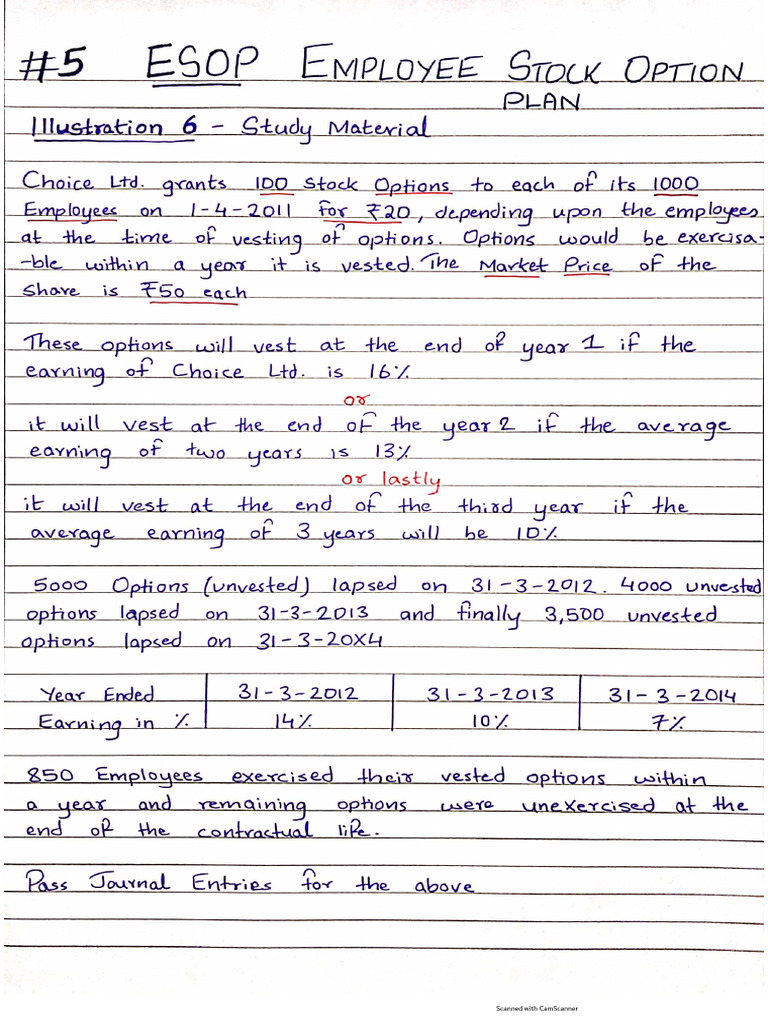 #5 ESOP EMPLOYEE STOCK OPTION
PLAN
Illustration 6 - Study Material
Choice Ltd. grants 100 Stock Options to each of its 1000
Employees on 1-4-2011 for ₹20, depending upon the employees
at the time of vesting of options. Options would be exercisa-
-ble within a year it is vested. The Market Price of the
share is ₹50 each
These options will vest at the end of year 1 if the
earning of Choice Ltd. is 16%
or
it will vest at the end of the year 2 if the average
earning of two years is 13%
or lastly
it will vest at the end of the third year if the
average earning of 3 years will be 10%
5000 Options (unvested) lapsed on 31-3-2012. 4000 unvested
options lapsed on 31-3-2013 and finally 3,500 unvested
options lapsed on 31-3-20X4
Year Ended 31-3-2012 31-3-2013 31-3-2014
Earning in % 14% 10% 7%
850 Employees exercised their vested options within
a year and remaining options were unexercised at the
end of the contractual life.
Pass Journal Entries for the above
Scanned with CamScanner